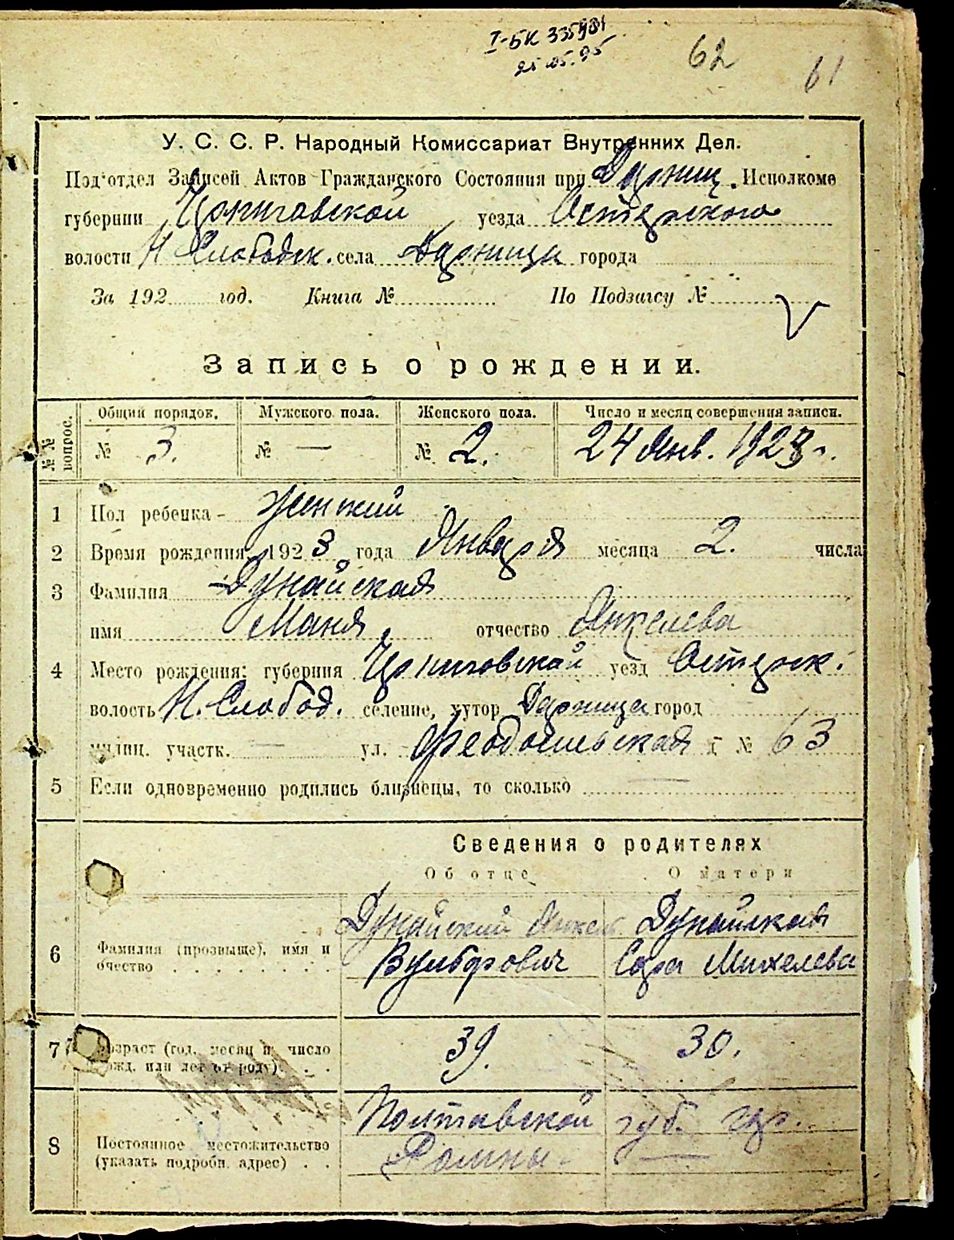 I-БК 335931
25.05.95
62
61
У. С. С. Р. Народный Комиссариат Внутренних Дел.
Под‘отдел Записей Актов Гражданского Состояния при Дарниц. Исполкоме
губернии Чернiговской уезда Остерского
волости Н Слободск. села Дарница города
За 192 год. Книга № По Подзагсу №
Запись о рождении.
№№ вопрос. Общий порядок. Мужского пола. Женского пола. Число и месяц совершения записи.
№ 3. № — № 2. 24 Янв. 1923 г.
1 Пол ребенка - женский
2 Время рождения 1923 года Января месяца 2. числа
3 Фамилия Дунайская
имя Маня отчество Янкелева
4 Место рождения: губерния Черниговской уезд Остерск.
волость Н. Слобод. селение, хутор Дарница город
милиц. участк. — ул. Феодосиевская № 63
5 Если одновременно родились близнецы, то сколько —
Сведения о родителях
Об отце О матери
6 Фамилия (прозвыще), имя и отчество Дунайский Янкель Вульфович Дунайская Сора Михелева
7 Возраст (год, месяц и число рожд. или лет от роду) 39. 30.
8 Постоянное местожительство (указать подробн. адрес) Полтавской губ. гор. Ромны. —